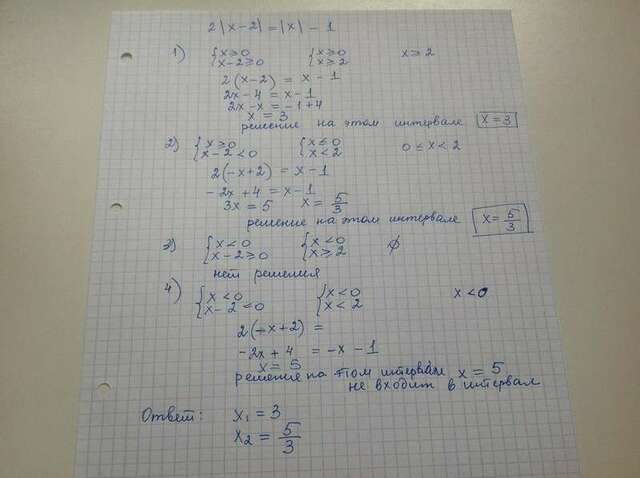 2|x-2| = |x| - 1
1) {x≥0 {x≥0 x≥2
{x-2≥0 {x≥2
2(x-2) = x-1
2x-4 = x-1
2x-x = -1+4
x = 3
решение на этом интервале x=3
2) {x≥0 {x≤0 0≤x<2
{x-2<0 {x<2
2(-x+2) = x-1
-2x+4 = x-1
3x = 5 x = 5/3
решение на этом интервале x = 5/3
3) {x<0 {x<0 ∅
{x-2≥0 {x≥2
нет решения
4) {x<0 {x<0 x<0
{x-2<0 {x<2
2(-x+2) =
-2x+4 = -x-1
x = 5
решение на этом интервале x = 5
не входит в интервал
Ответ: x₁ = 3
x₂ = 5/3